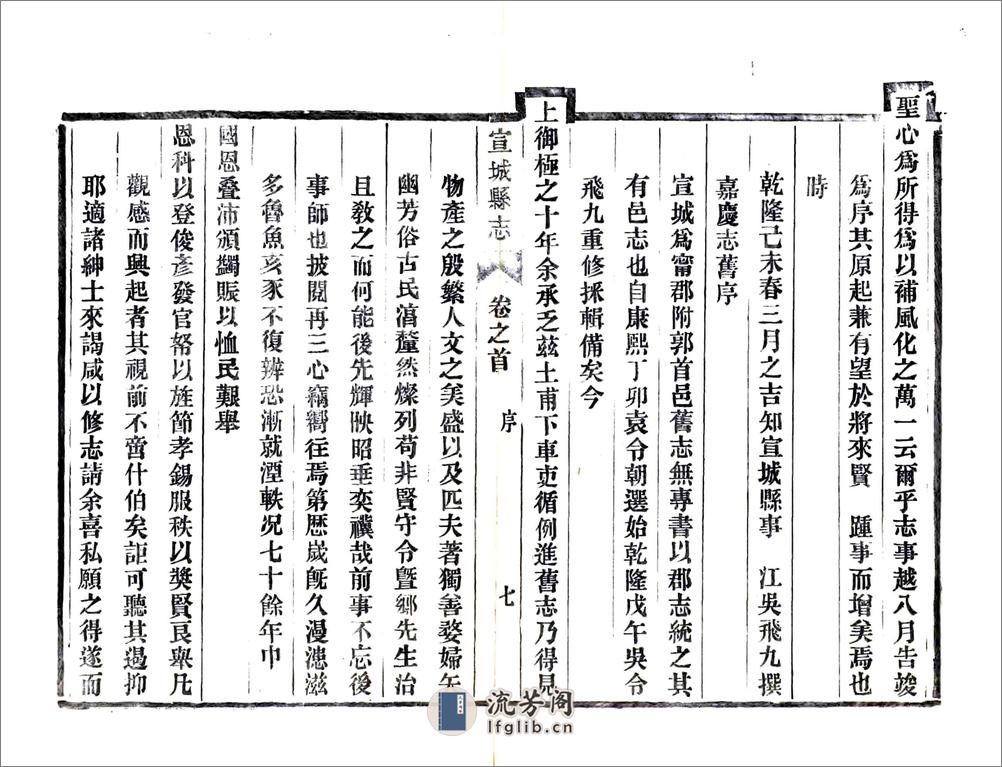 聖心爲所得爲以補風化之萬一云爾乎志事越八月告竣
爲序其原起兼有望於將來賢　踵事而增美焉也
時
乾隆己未春三月之吉知宣城縣事　江吳飛九撰
嘉慶志舊序
宣城爲甯郡附郭首邑舊志無專書以郡志統之其
有邑志也自康熙丁卯袁令朝選始乾隆戊午吳令
飛九重修採輯備矣今
上御極之十年余承乏兹土甫下車吏循例進舊志乃得見
宣城縣志　卷之首　序　七
物產之殷繁人文之美盛以及匹夫著獨善婺婦矢
幽芳俗古民淳釐然燦列苟非賢守令曁鄉先生治
且敎之而何能後先輝映昭垂奕禩哉前事不忘後
事師也披閱再三心竊嚮往焉第歴歲旣久漫漶滋
多魯魚亥豕不復辨恐漸就湮軼况七十餘年巾
國恩叠沛頒蠲賑以恤民艱舉
恩科以登俊彥發官帑以旌節孝錫服秩以奬賢良舉凡
觀感而興起者其視前不啻什伯矣詎可聽其遏抑
耶適諸紳士來謁咸以修志請余喜私願之得遂而
流芳阁
lfglib.cn